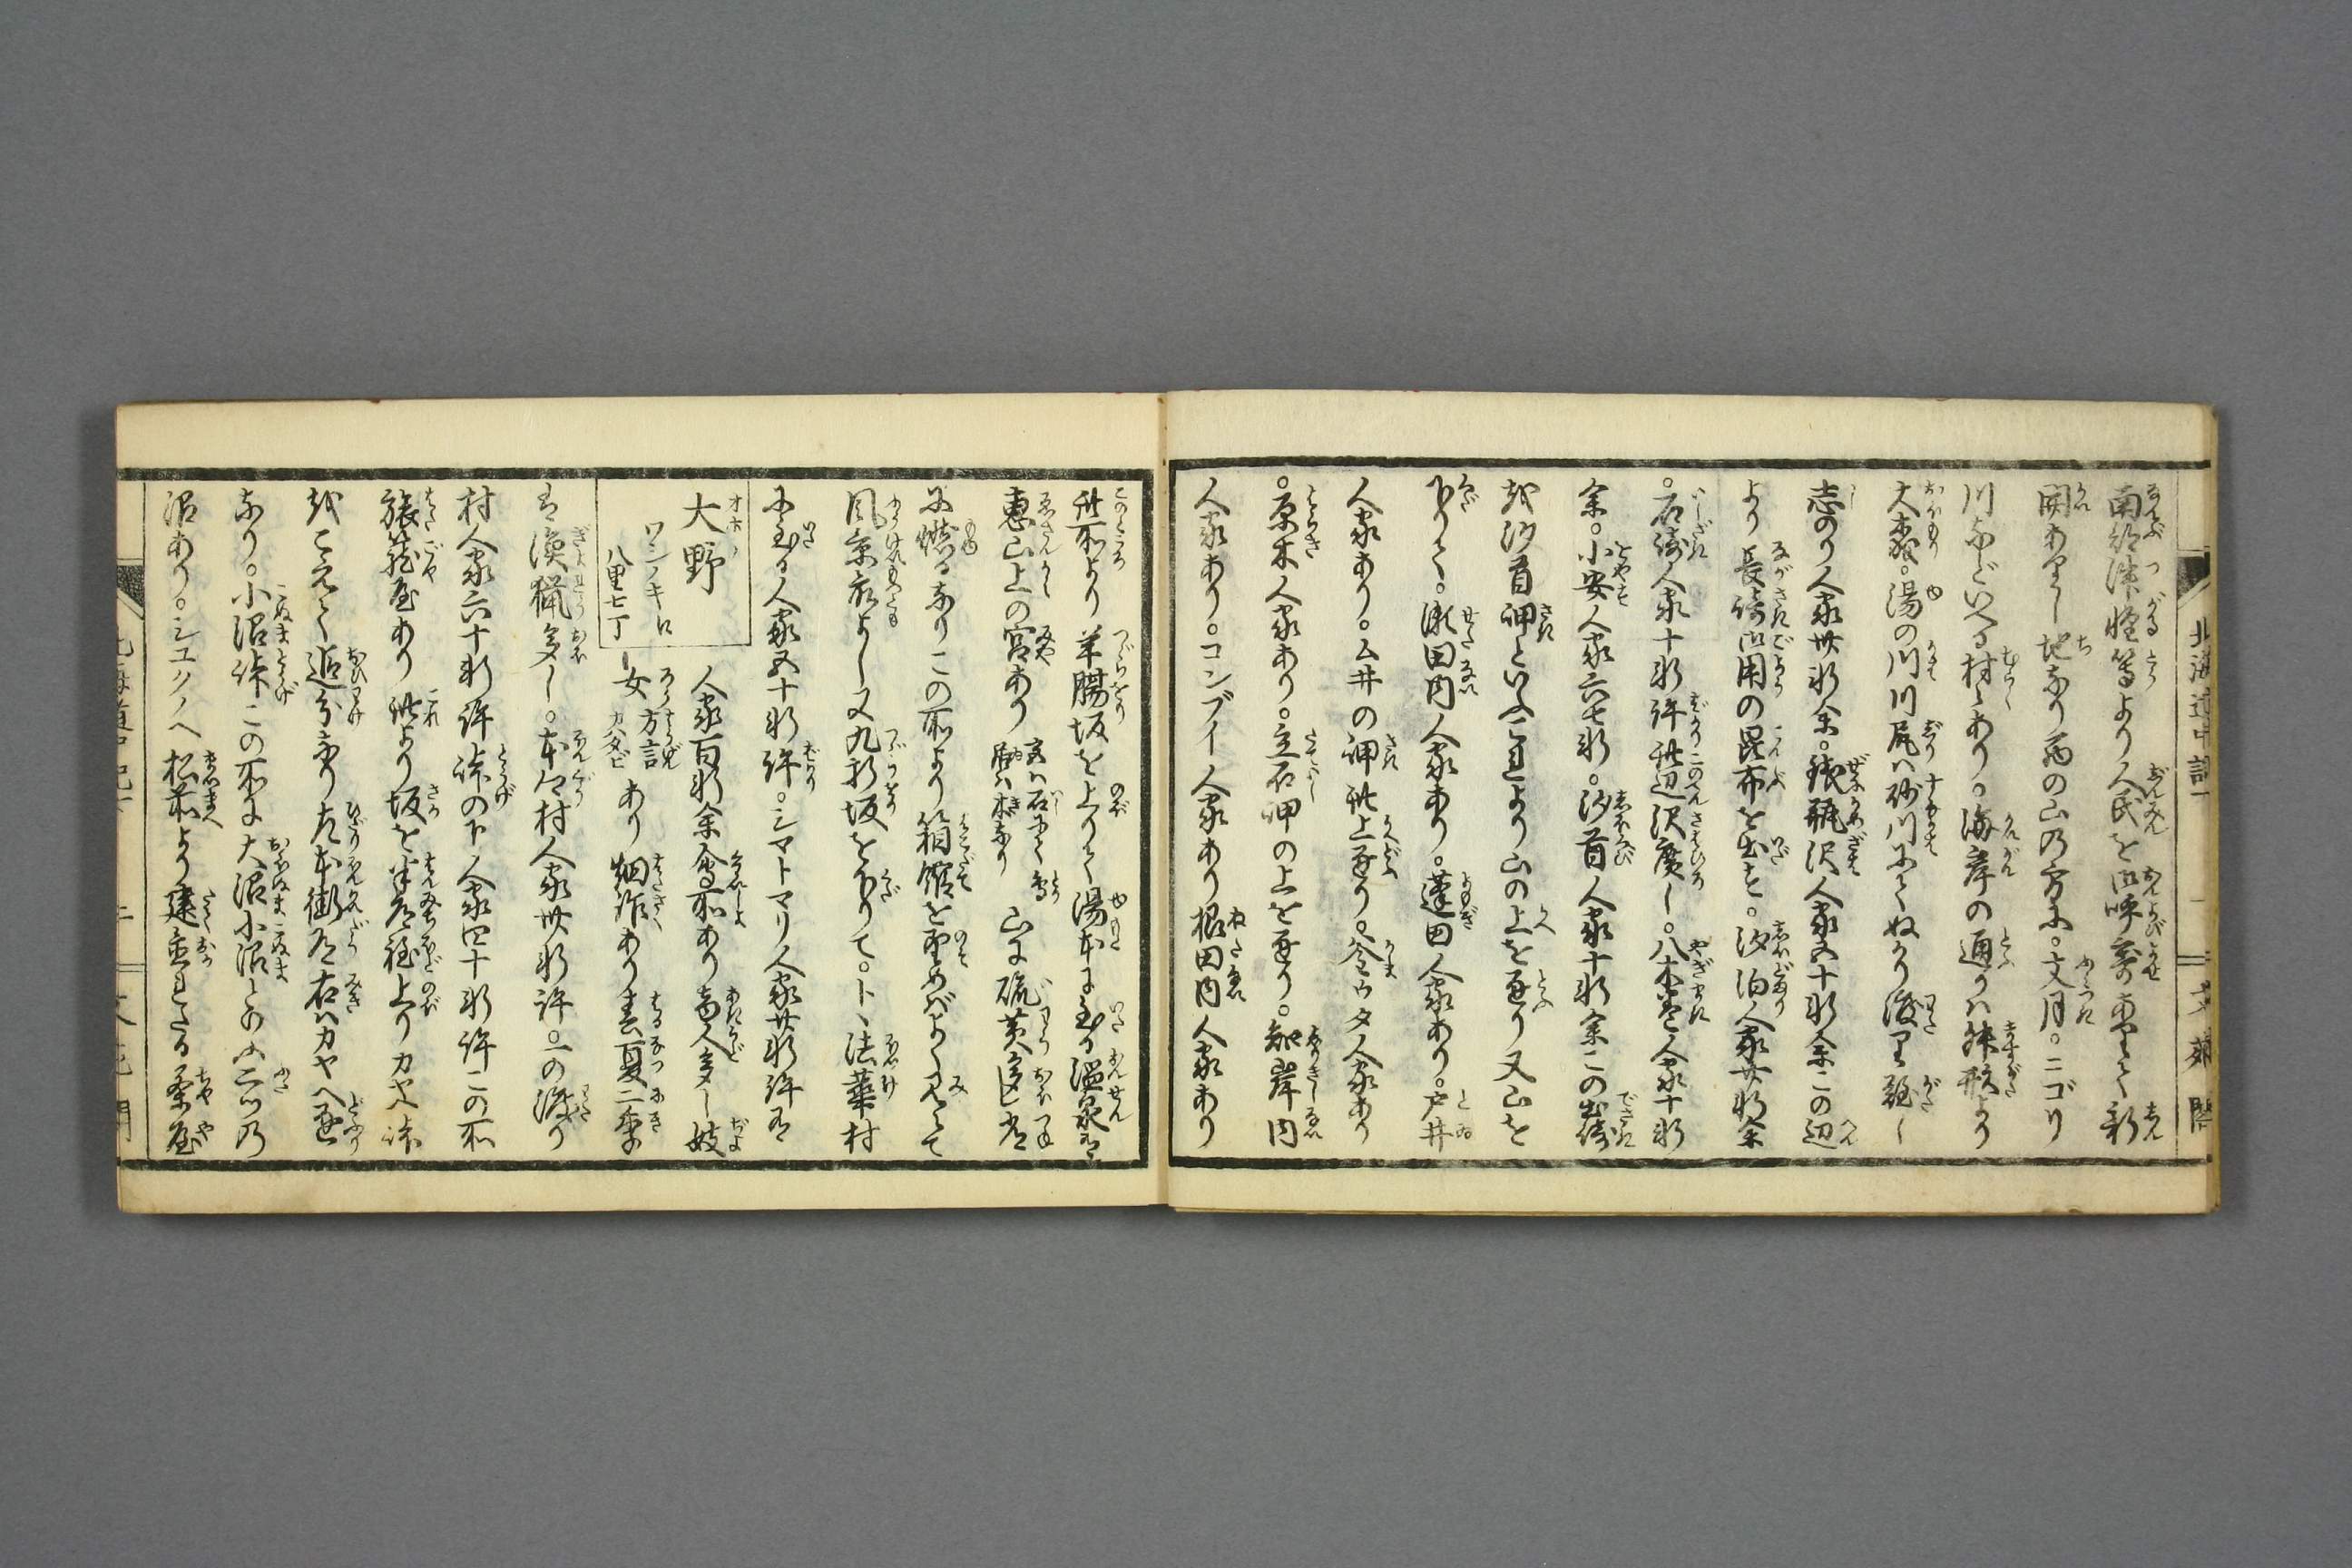 南部津軽等より人民を御呼寄ありて新
開ありし地なり前の山の方に。文月。ニゴリ
川などいへる村々あり。海岸の通りハ舛形より
大森。湯の川川尻ハ砂川にてぬかり渡り難し
志のり人家卅軒余。銭瓶沢人家五十軒余この辺
より長崎御用の昆布を出す。汐泊人家廿軒余
。石崎人家十軒許此辺沢廣し。八木巻人家十軒
余。小安人家六七軒。汐首人家十軒余この出崎
を汐首岬といふこれより山の上を通り又山を
下りて。瀬田内人家あり。蓬田人家あり。戸井
人家あり。ム井の岬此上通り。釜ウタ人家あり
。原木人家あり。立石岬の上を通り。尻岸内
人家あり。コンブイ人家あり根田内人家あり
此所より羊腸坂を上りて湯本に至る温泉有
恵山上の宮あり 山に硫黄多し常
に燃るなりこの所より箱館を望めバよく見へて
風景最よし又九折坂を下りて。トヽ法華村
に至る人家五十軒許。シマトマリ人家廿軒許有
大野 オホノ
ワシノキヘ
八里七丁
人家百軒余会所あり商人多し妓
女方言ガノジありあり畑作あり春夏二季
は漁猟多し。本郷村人家卅軒許。一の渡り
村人家六十軒許峠の下人家四十軒許この所
旅籠屋あり此より坂を半道程上りカヤベ峠
をこえて追分あり左本街道右ハカヤベ通
なり。小沼峠この所に大沼小沼とゆふ二ツの
沼あり。シユクノベ松前より建置れたる茶屋
北海道中記